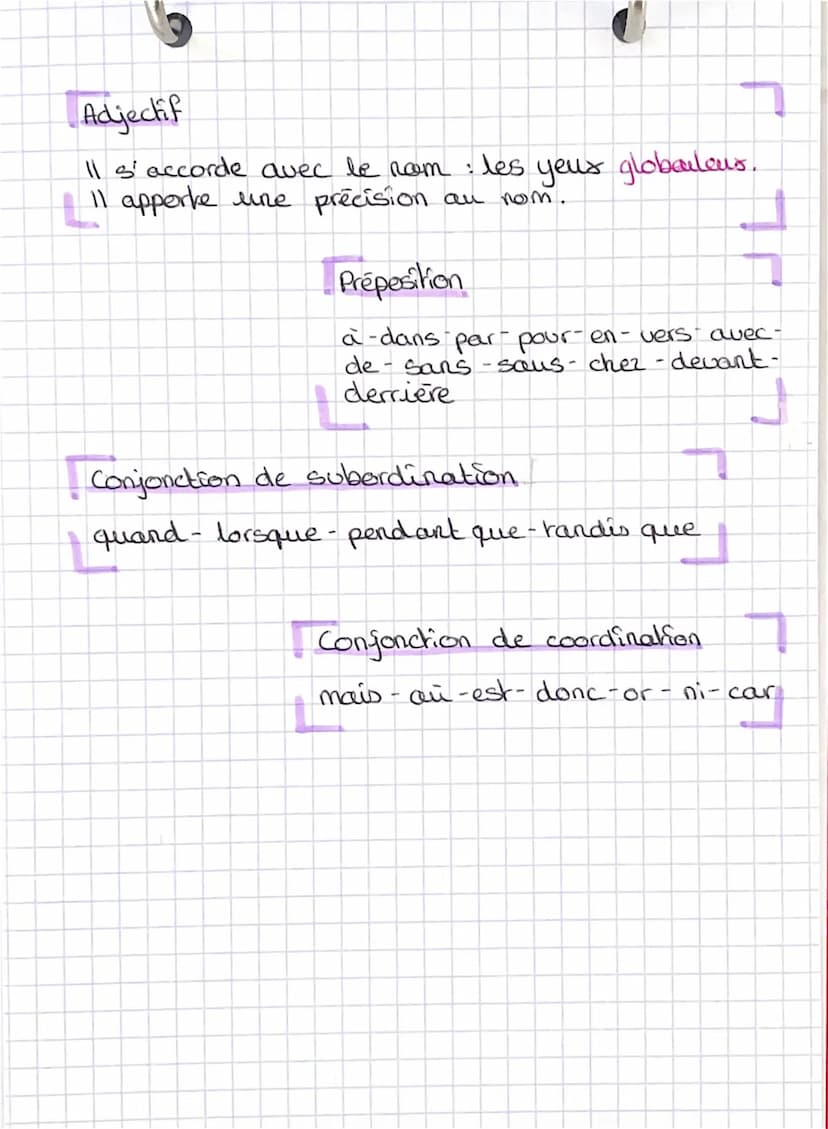 Adjectif
Il s'accorde avec le nom : les yeux globuleux.
Il apporte une précision au nom.
Préposition
à - dans - par - pour - en - vers - avec -
de - sans - sous - chez - devant -
derrière
Conjonction de subordination
quand - lorsque - pendant que - tandis que
Conjonction de coordination
mais - où - est - donc - or - ni - car